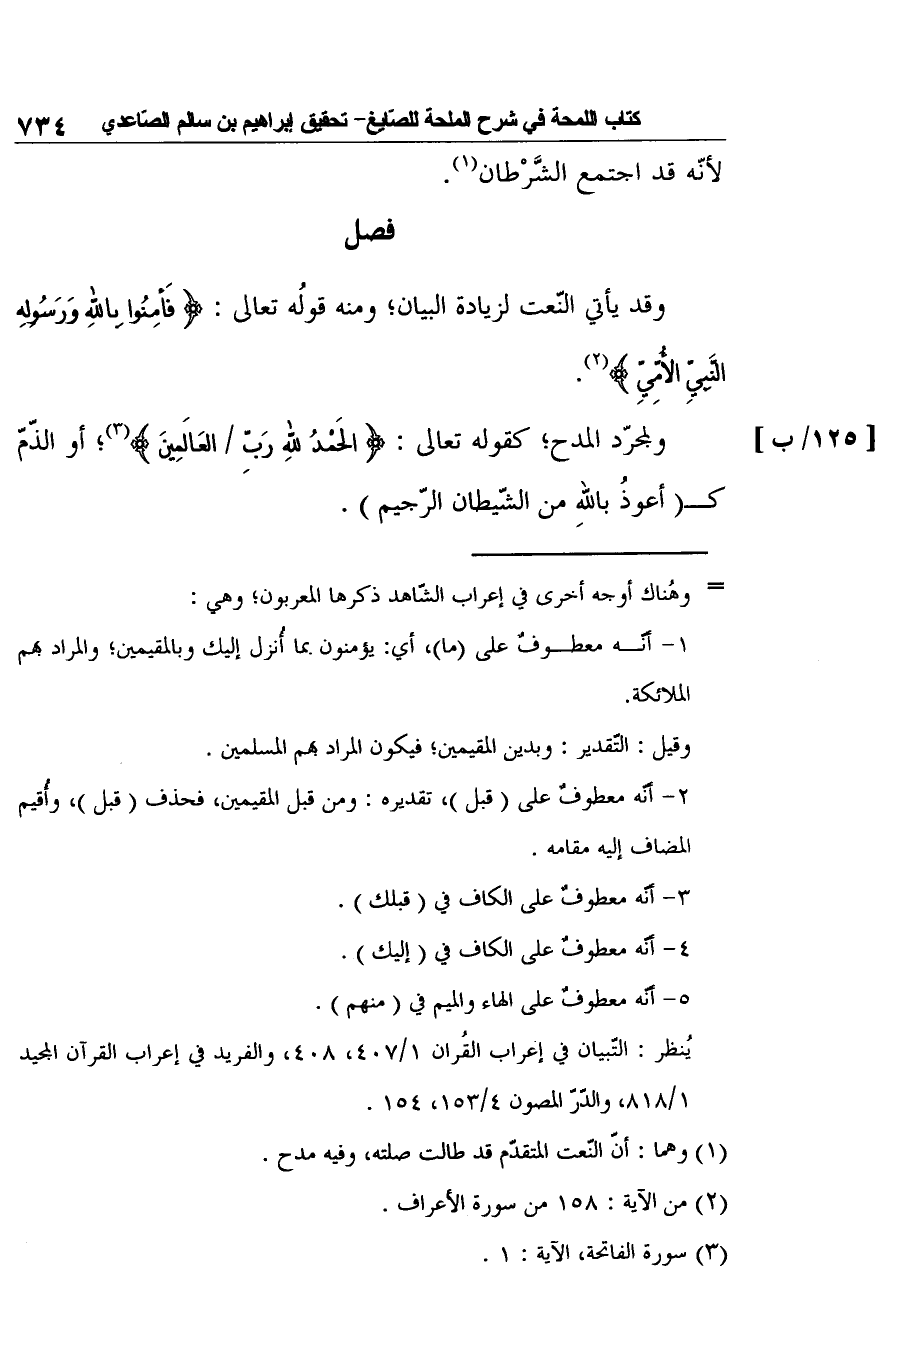 كتاب اللمحة في شرح الملحة للصّايغ- تحقيق إبراهيم بن سالم الصّاعدي ٧٣٤
لأنّه قد اجتمع الشَّرْطان(١).
فصل
وقد يأتي النّعت لزيادة البيان؛ ومنه قولُه تعالى : ﴿ فَآمِنُوا بِاللهِ وَرَسُولِهِ
النَّبِيِّ الأُمِّيِّ ﴾(٢).
[ ١٢٥/ ب ] ولمجرّد المدح؛ كقوله تعالى : ﴿ الحَمْدُ للهِ رَبِّ / العَالَمِينَ ﴾(٣)؛ أو الذّمّ
كــ( أعوذُ باللهِ من الشّيطان الرّجيم ) .
= وهُناك أوجه أخرى في إعراب الشّاهد ذكرها المعربون؛ وهي :
١- أنّــه معطــوفٌ على (ما)، أي: يؤمنون بما أُنزل إليك وبالمقيمين؛ والمراد بهم
الملائكة.
وقيل : التّقدير : وبدين المقيمين؛ فيكون المراد بهم المسلمين .
٢- أنّه معطوفٌ على ( قبل )، تقديره : ومن قبل المقيمين، فحذف ( قبل )، وأُقيم
المضاف إليه مقامه .
٣- أنّه معطوفٌ على الكاف في ( قبلك ) .
٤- أنّه معطوفٌ على الكاف في ( إليك ) .
٥- أنّه معطوفٌ على الهاء والميم في ( منهم ) .
يُنظر : التّبيان في إعراب القُران ٤٠٧/١، ٤٠٨، والفريد في إعراب القرآن المجيد
٨١٨/١، والدّرّ المصون ١٥٣/٤، ١٥٤ .
(١) وهما : أنّ النّعت المتقدّم قد طالت صلته، وفيه مدح .
(٢) من الآية : ١٥٨ من سورة الأعراف .
(٣) سورة الفاتحة، الآية : ١ .